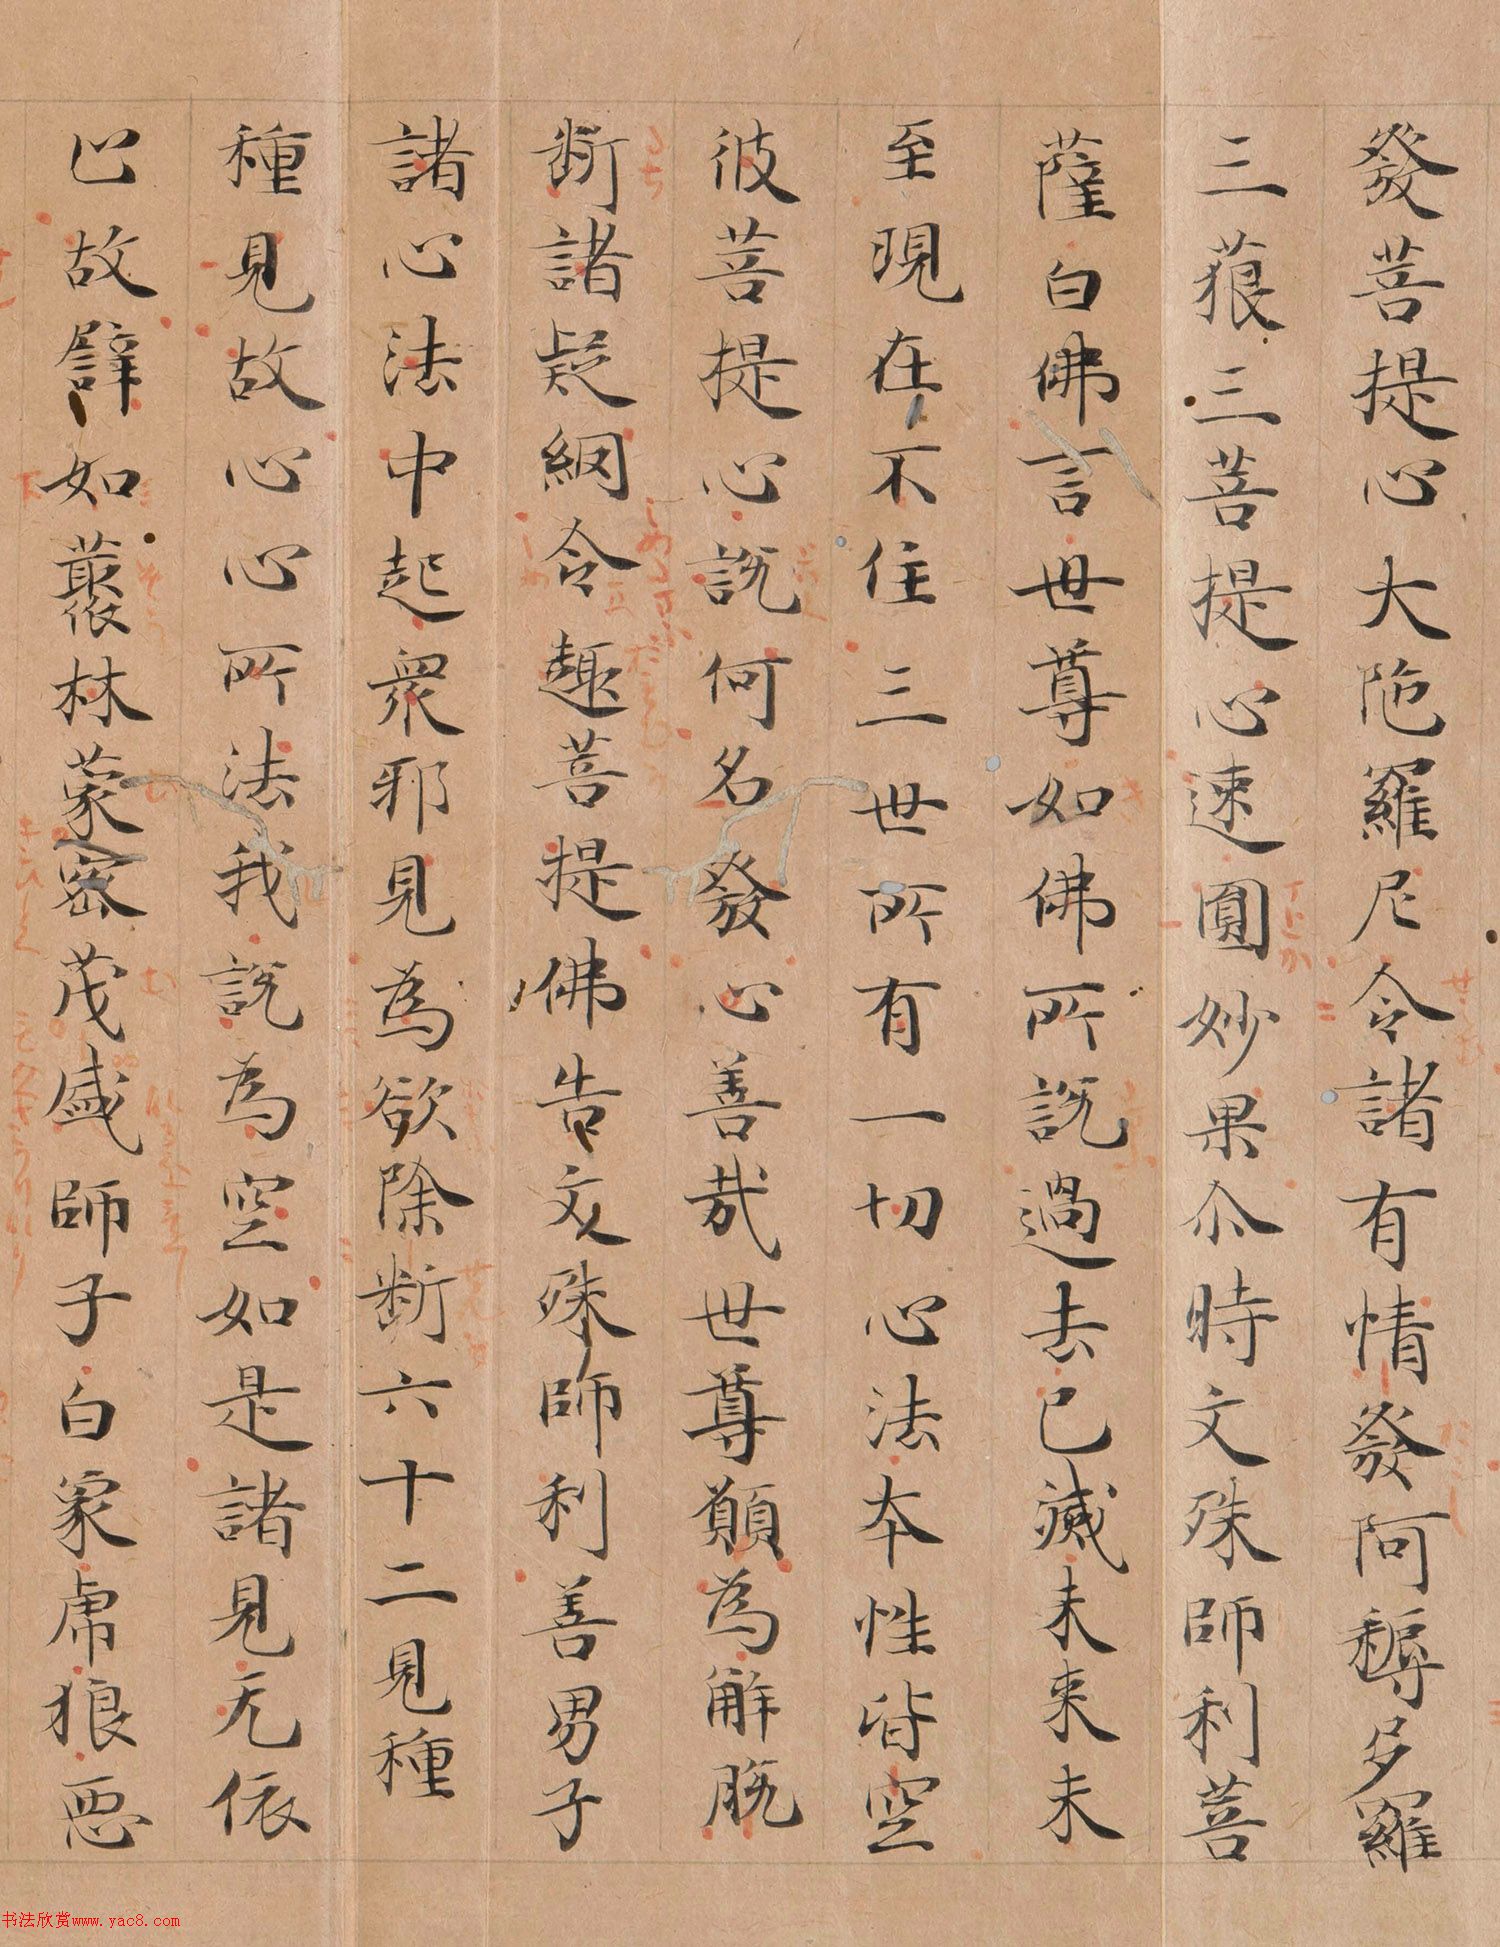 發菩提心大陁羅尼令諸有情發阿耨多羅
三藐三菩提心速圓妙果尒時文殊師利菩
薩白佛言世尊如佛所說過去已滅未來未
至現在不住三世所有一切心法本性皆空
彼菩提心說何名發心善哉世尊願為解脫
斷諸疑網令趣菩提佛告文殊師利善男子
諸心法中起衆邪見為欲除斷六十二見種
種見故心心所法我說為空如是諸見无依
止故譬如叢林蒙密茂盛師子白象虎狼惡
书法欣赏www.yac8.com